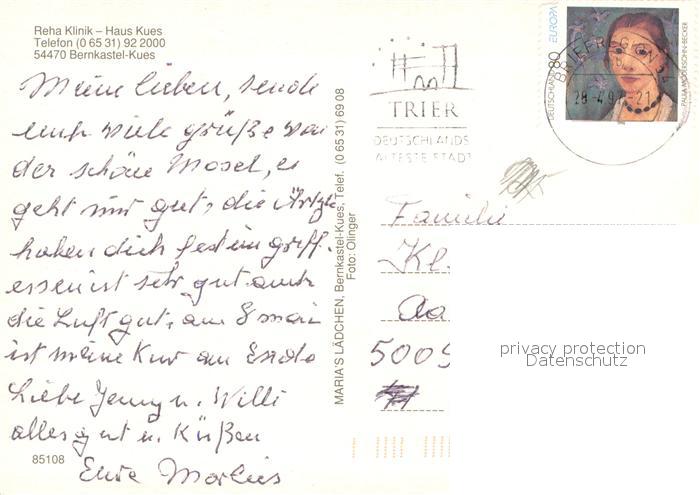 Reha Klinik – Haus Kues
Telefon (0 65 31) 92 2000
54470 Bernkastel-Kues
Meine lieben, sende
euch viele grüße von
der schöne Mosel, es
geht mir gut, die Ärzte
haben dich fest im griff.
essen ist sehr gut auch
die Luft gut, am 8 mai
ist meine Kur am Ende
Liebe Jenny u. Willi
alles gut u. Küßen
Eure
85108
MARIA'S LÄDCHEN, Bernkastel-Kues, Telef. (0 65 31) 69 08
Foto: Olinger
TRIER
DEUTSCHLANDS
ÄLTESTE STADT
DEUTSCHLAND 80 EUROPA
PAULA MODERSOHN-BECKER
BRIEFREGION
Familie
Kl.
Aa
5009
privacy protection
Datenschutz